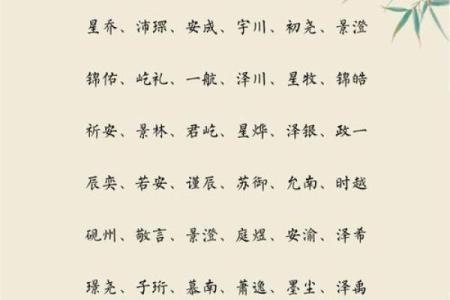 星乔、沛琛、安成、宇川、初尧、景澄
锦佑、屹礼、一航、泽川、星牧、锦皓
祈安、景林、君屹、星烨、泽银、政一
辰奕、若安、谨辰、苏御、允南、时越
砚州、敬言、景澄、庭煜、安渝、泽希
璟尧、子珩、慕南、萧逸、墨尘、泽禹